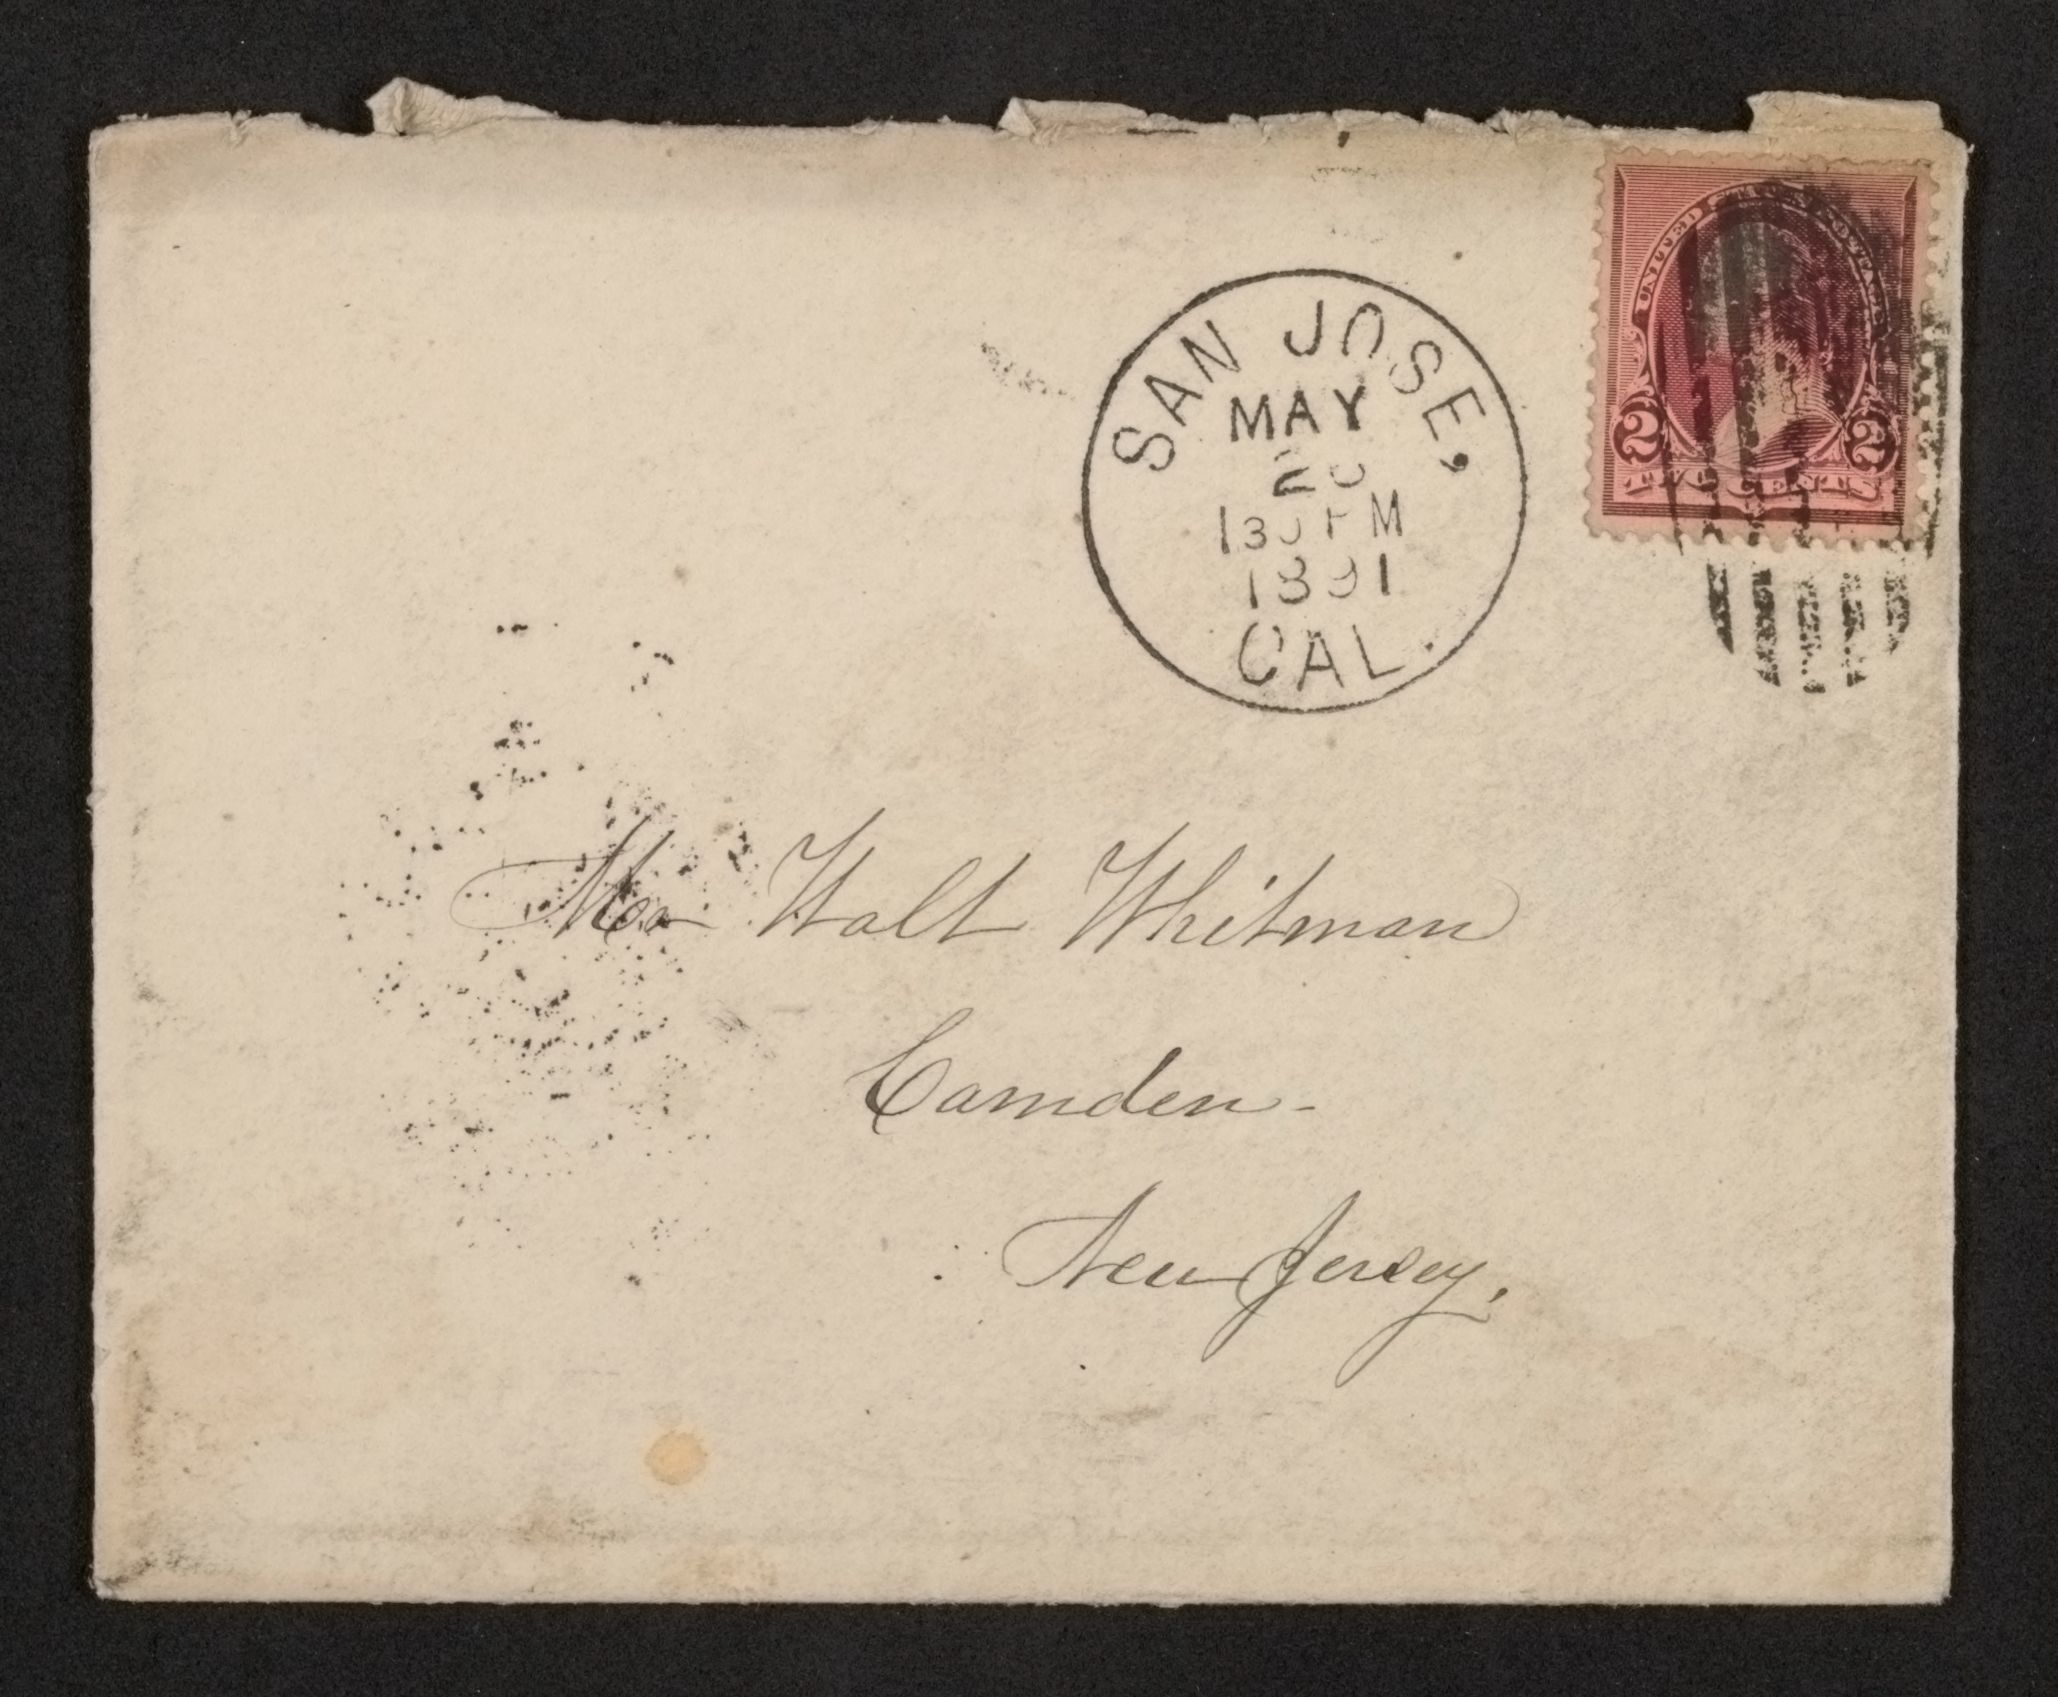 SAN JOSE,
MAY
130 PM
1891
CAL.
UNITED STATES POSTAGE
2 2
Mr Walt Whitman
Camden-
New Jersey.